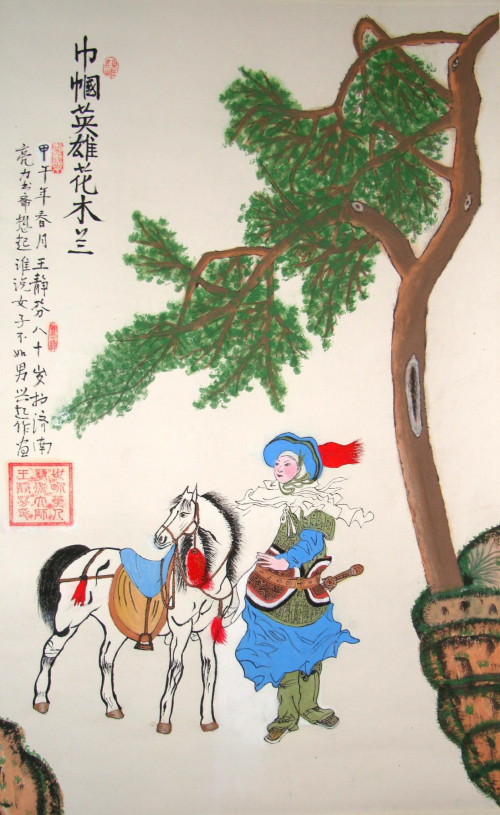 巾幗英雄花木兰
甲午年春月王静芬八十岁扵济南
亮力书斋想起谁说女子不如男兴起作画